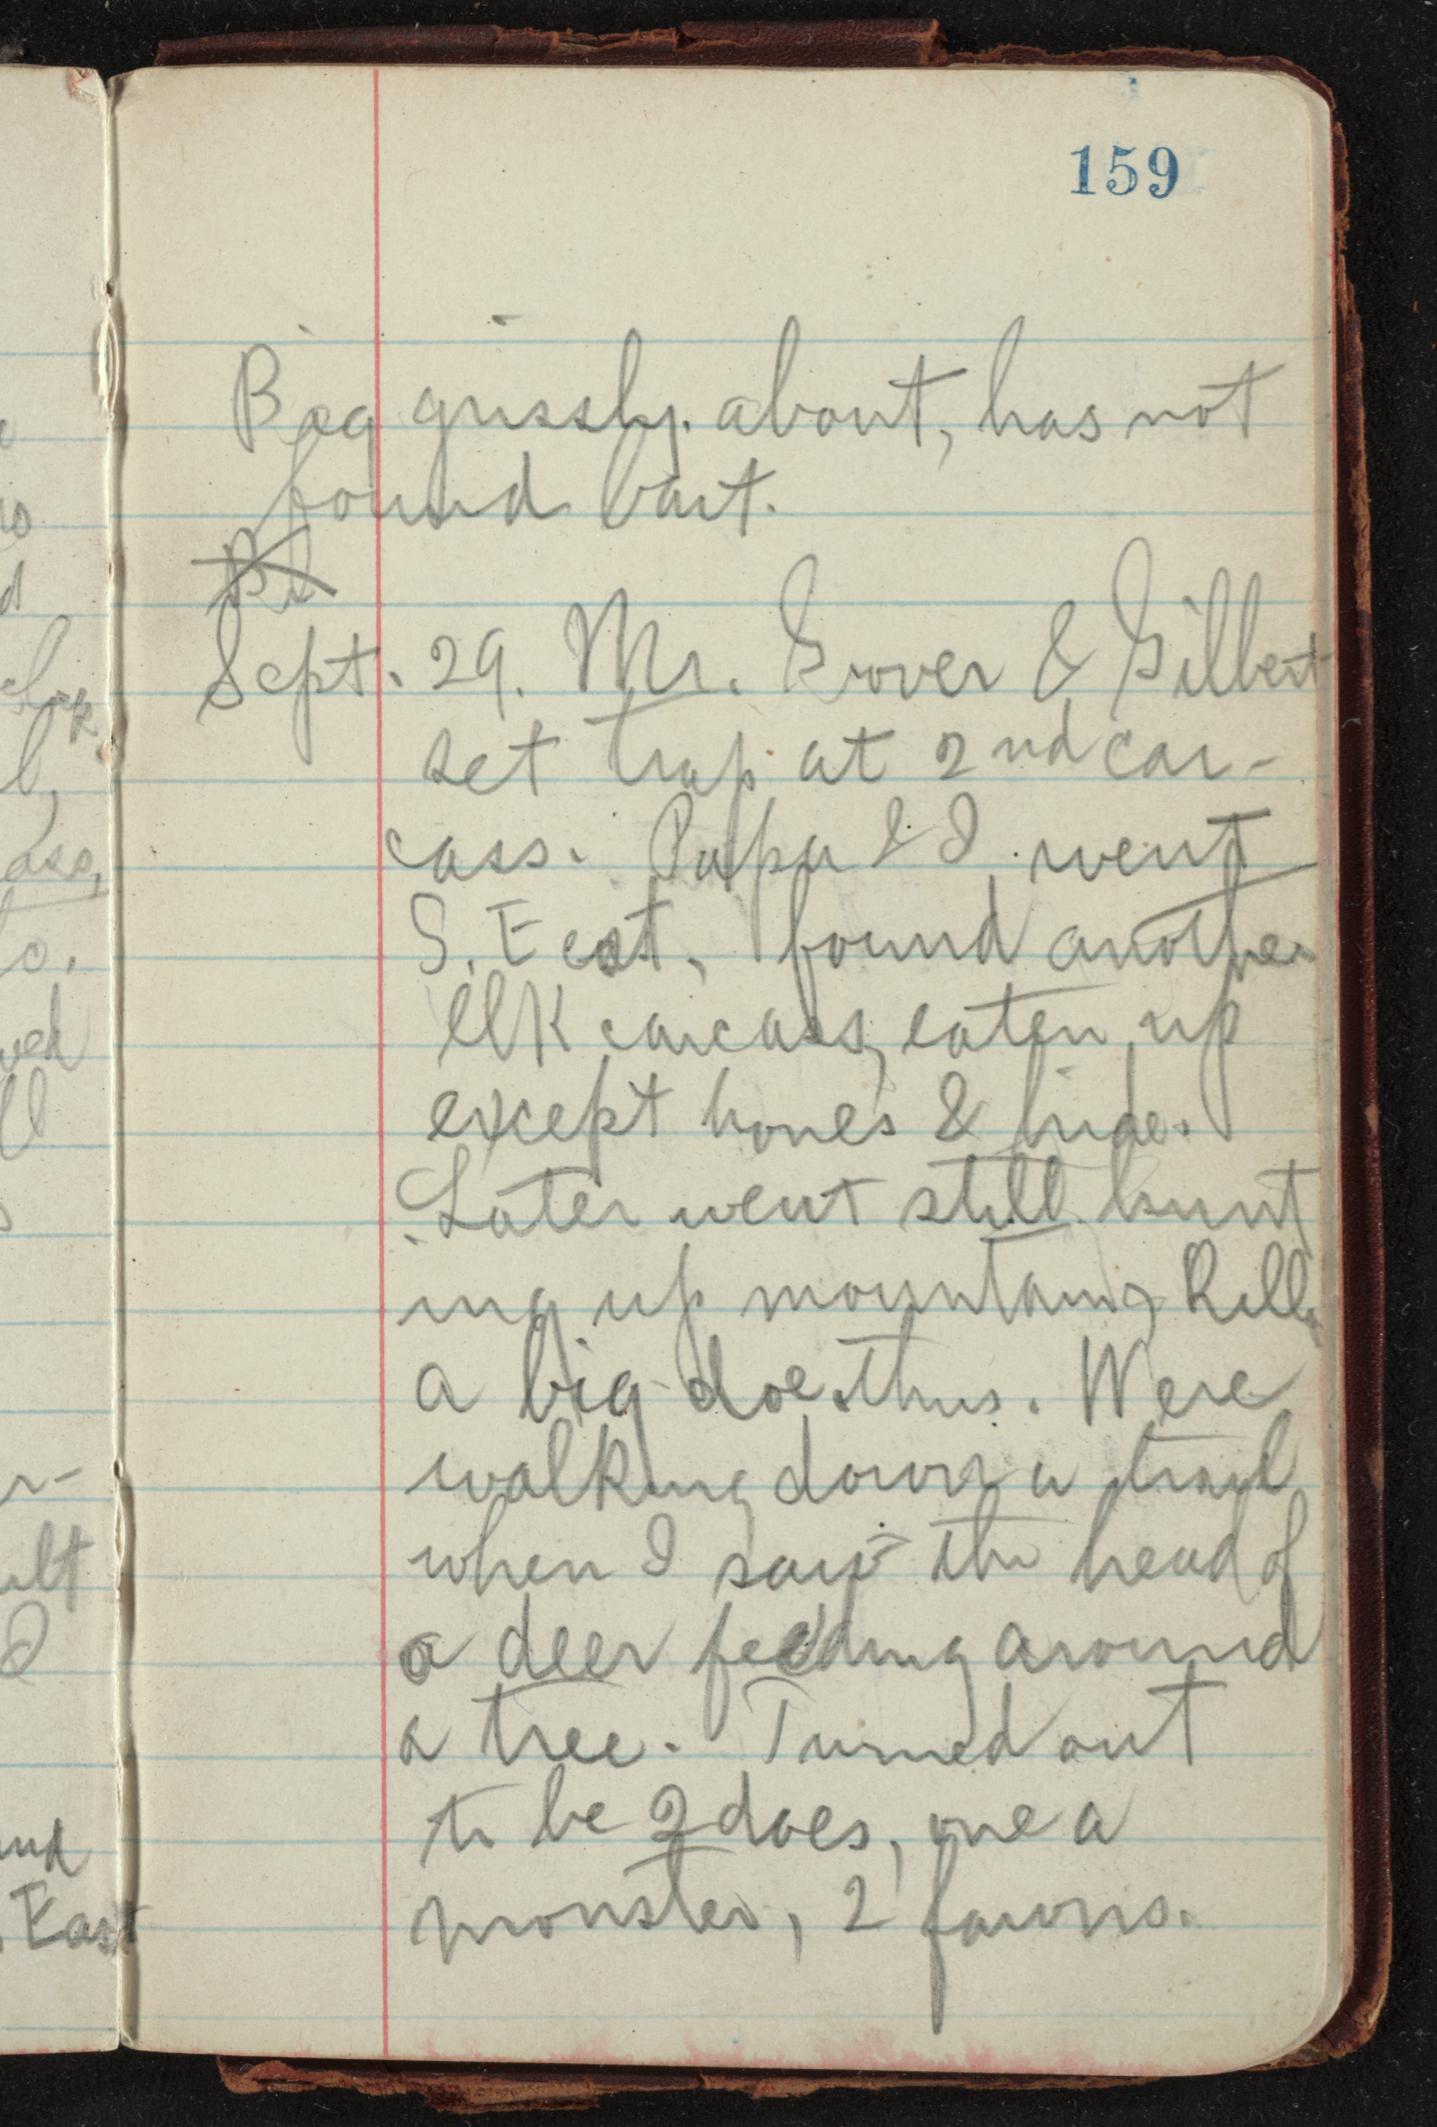 159
Big grissly about, has not
found bait.
Sept. 29. Mr. Grover & Gilbert
set trap at 2nd car-
cass. Papa & I went
S. East, found another
elk carcass, eaten up
except bones & hide.
Later went still hunt
ing up mountain,
a big doe thus. Were
walking down a trail
when I saw the head of
a deer feeding around
a tree. Turned out
to be 2 does, one a
monster, 2 fawns.